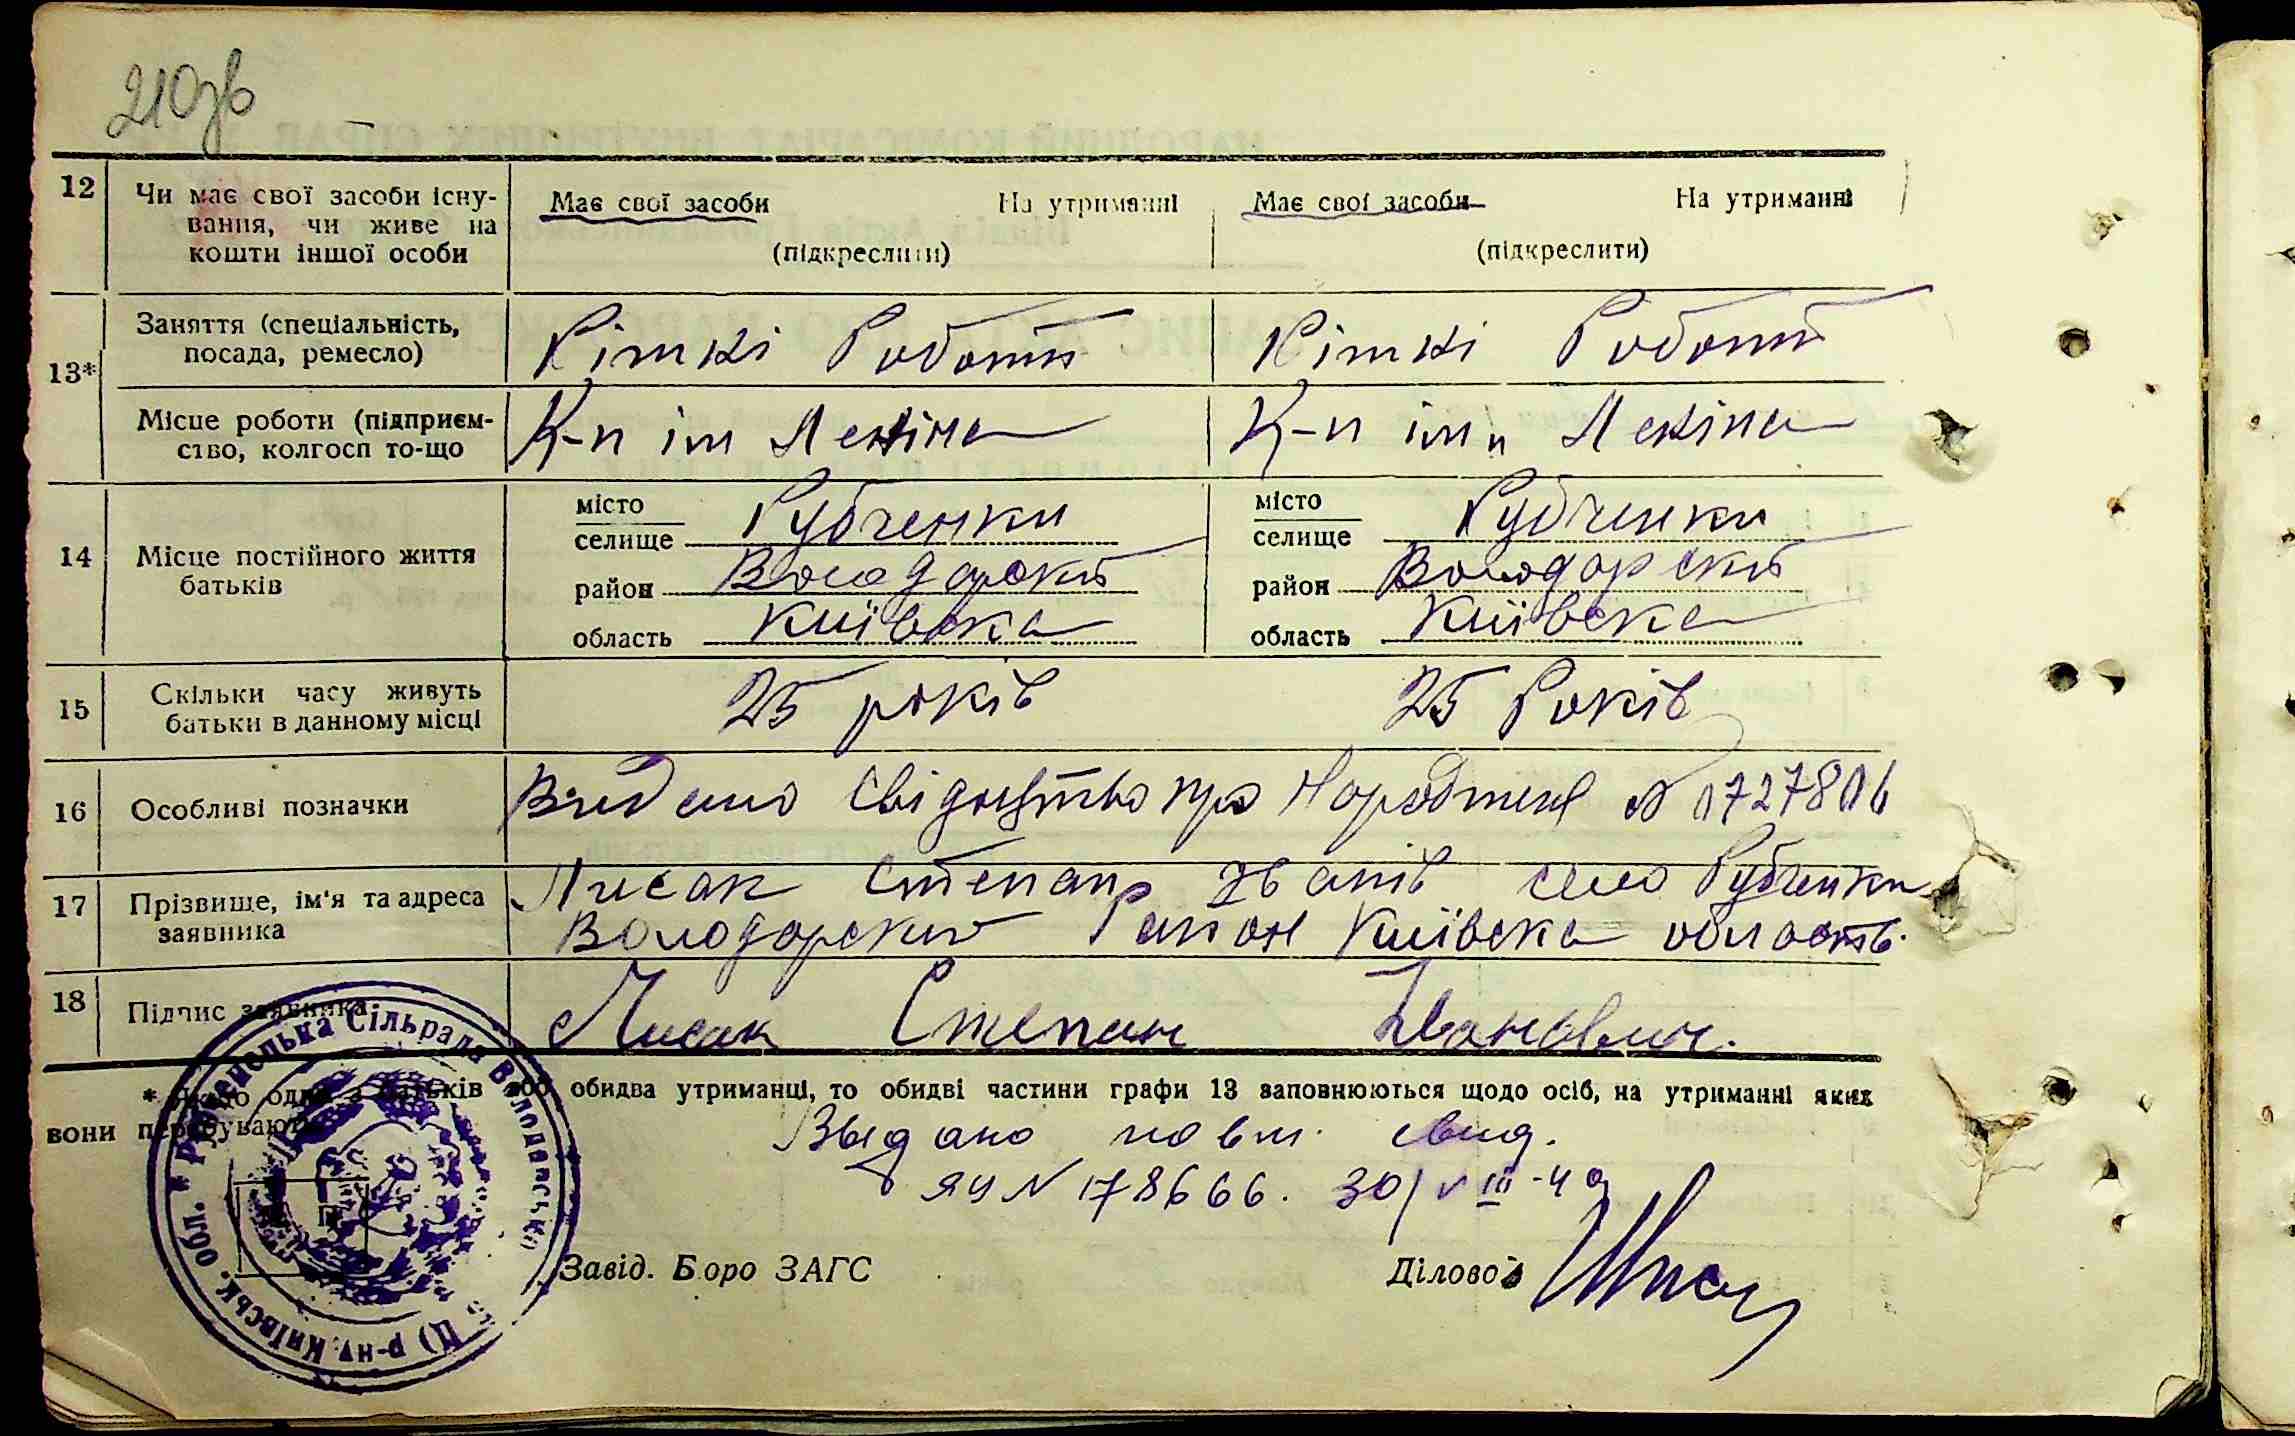 210зв
12 Чи має свої засоби існу-
вання, чи живе на
кошти іншої особи
Має свої засоби На утриманні Має свої засоби На утриманні
(підкреслити) (підкреслити)
13*
Заняття (спеціальність,
посада, ремесло)
Різні Роботи Різні Роботи
Місце роботи (підприєм-
ство, колгосп то-що
К-п ім Леніна К-п ім Леніна
14 Місце постійного життя
батьків
місто
селище Рубченки
район Володарський
область Київська
місто
селище Рубченки
район Володарський
область Київська
15 Скільки часу живуть
батьки в данному місці
25 років 25 Років
16 Особливі позначки
Видано Свідоцтво про Народження №
17 Прізвище, ім'я та адреса
заявника
Лисак Степан Іванів село Рубченки
Володарський Район Київска область.
18 Підпис заявника
Лисак Степан Іванович.
* Якщо один з батьків або обидва утриманці, то обидві частини графи 13 заповнюються щодо осіб, на утриманні яких
вони перебувають
Выдано повт. свид.
ЯЧ N 178666. 30/VIII-49
Завід. Бюро ЗАГС Діловод
* Рубченська Сільрада Володарськ
р-ну, Київськ. обл.